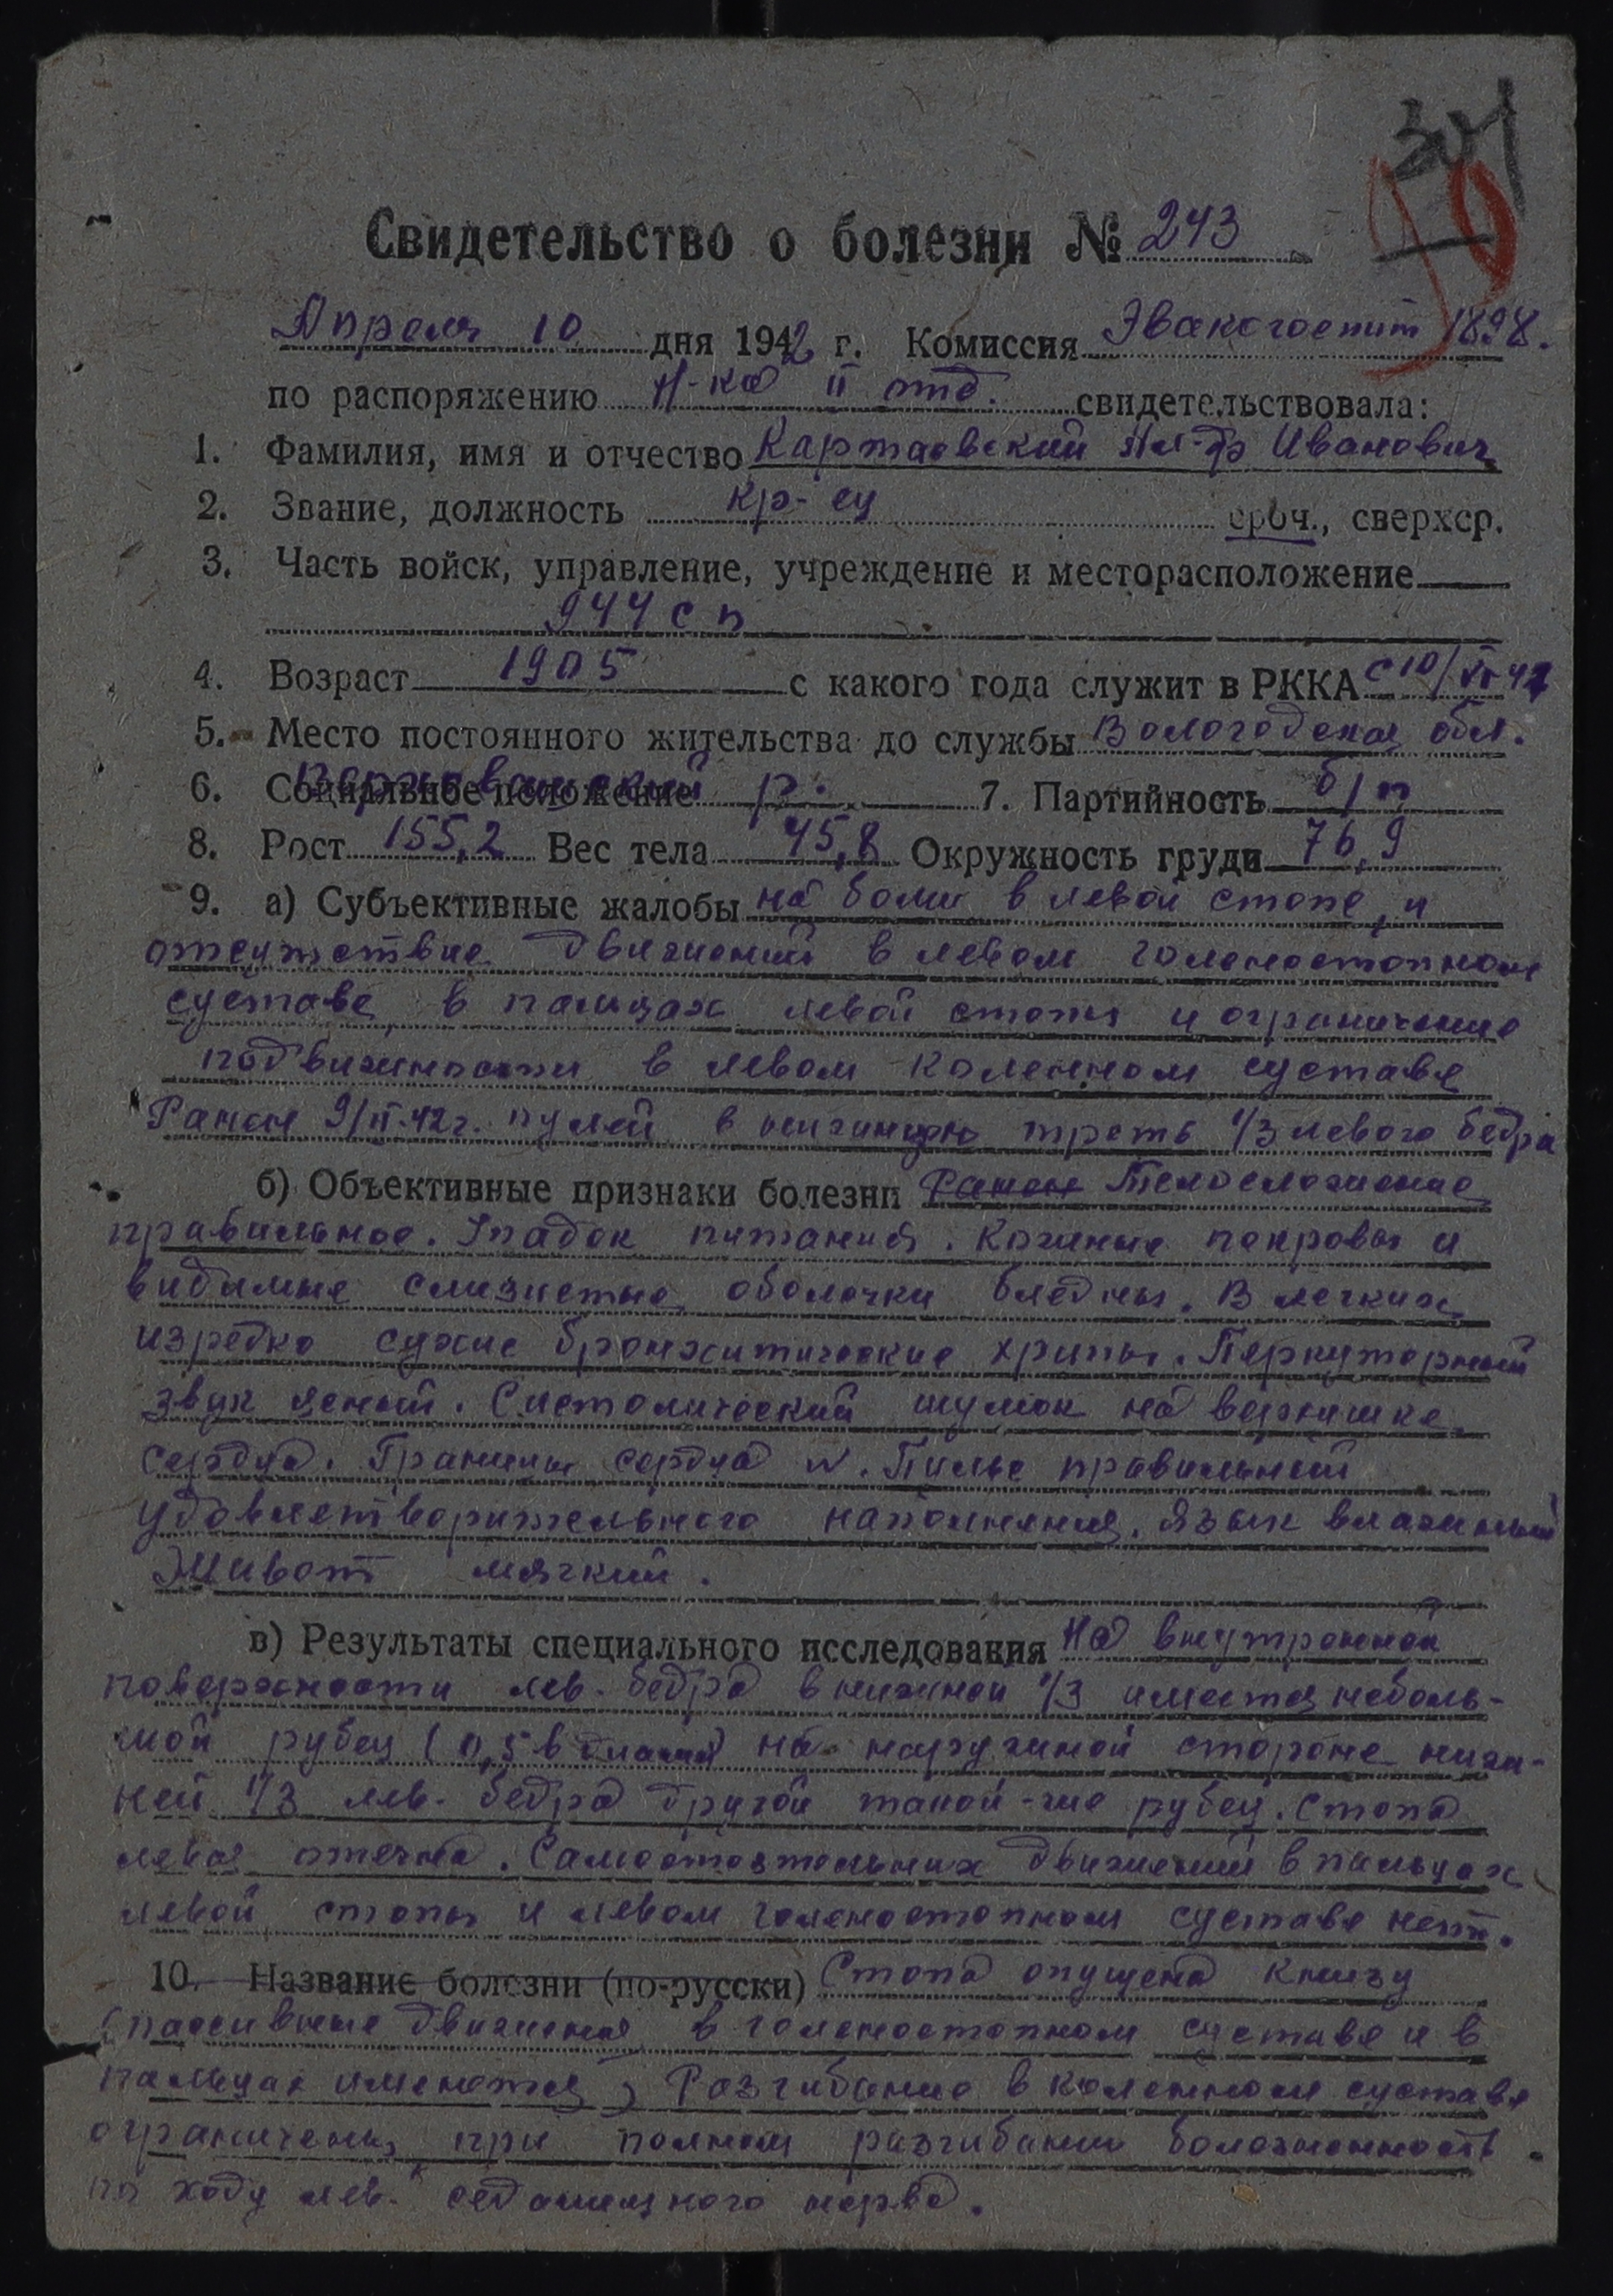 301
10
Свидетельство о болезни № 243
Апреля 10 дня 1942 г. Комиссия Эвакогоспит 1898.
по распоряжению Н-ка II отд. свидетельствовала:
1. Фамилия, имя и отчество Картаевский Ал-др Иванович
2. Звание, должность кр-ец сроч., сверхср.
3. Часть войск, управление, учреждение и месторасположение
944 сп
4. Возраст 1905 с какого года служит в РККА с 10/VI 41
5. Место постоянного жительства до службы Вологодская обл.
6. Социальное положение р. 7. Партийность б/п
8. Рост 155,2 Вес тела 45,8 Окружность груди 76,9
9. а) Субъективные жалобы на боли в левой стопе, и
отсутствие движений в левом голеностопном
суставе, в пальцах левой стопы и ограничение
подвижности в левом коленном суставе
Ранен 9/II-42 г. пулей в нижнюю треть 1/3 левого бедра
б) Объективные признаки болезни Ранен Телосложение
правильное. Упадок питания. Кожные покровы и
видимые слизистые оболочки бледны. В легких
изредка сухие бронхитические хрипы. Перкуторный
звук ясный. Систолический шумок на верхушке
сердца. Границы сердца N. Пульс правильный
удовлетворительного наполнения. Язык влажный
Живот мягкий.
в) Результаты специального исследования На внутренней
поверхности лев. бедра в нижней 1/3 имеется неболь-
шой рубец (0,5 в диам) на наружной стороне ниж-
ней 1/3 лев. бедра другой такой-же рубец. Стопа
левая отечна. Самостоятельных движений в пальцах
левой стопы и левом голеностопном суставе нет.
10. Название болезни (по-русски) Стопа опущена книзу
(пассивные движения в голеностопном суставе и в
пальцах имеются) Разгибание в коленном суставе
ограничено, при полном разгибании болезненность
по ходу лев. седалищного нерва.